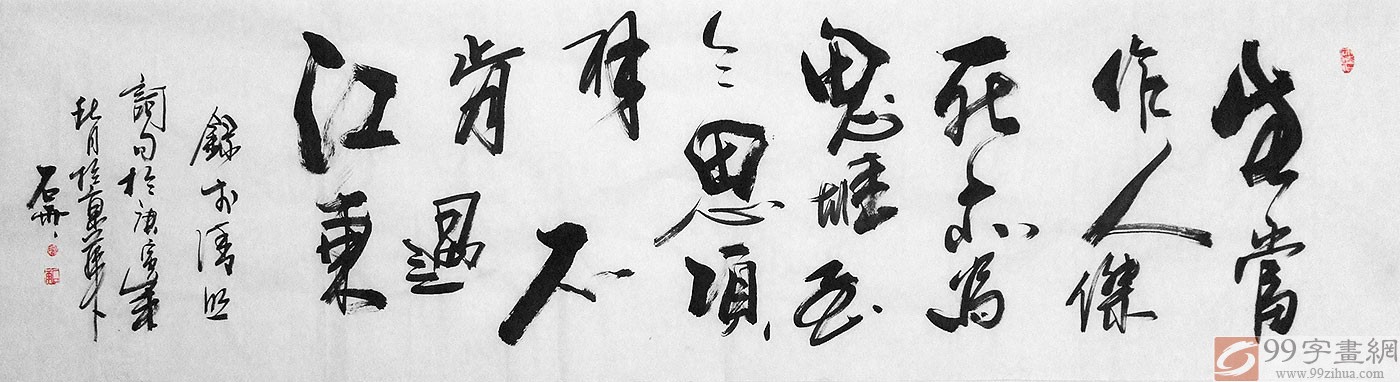 生當
作人傑
死亦為
鬼雄至
今思項
羽不
肯過
江東
錄李清照
詞句於庚寅歲
秋月於京華
石
99字畫網
www.99zihua.com